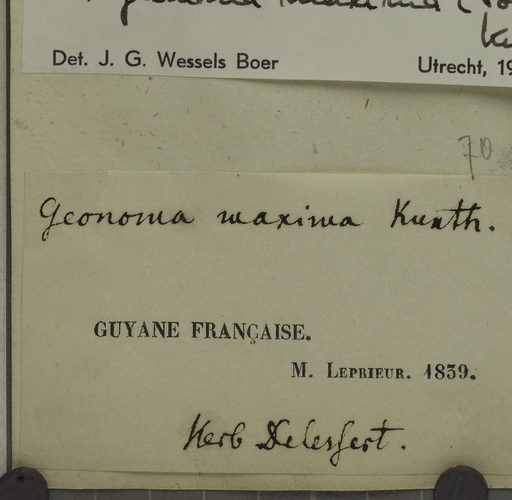 Geonoma maxima (Po
Ku
Det. J. G. Wessels Boer Utrecht, 19
70
Geonoma maxima Kunth.
GUYANE FRANÇAISE.
M. LEPRIEUR. 1839.
Herb Delessert.